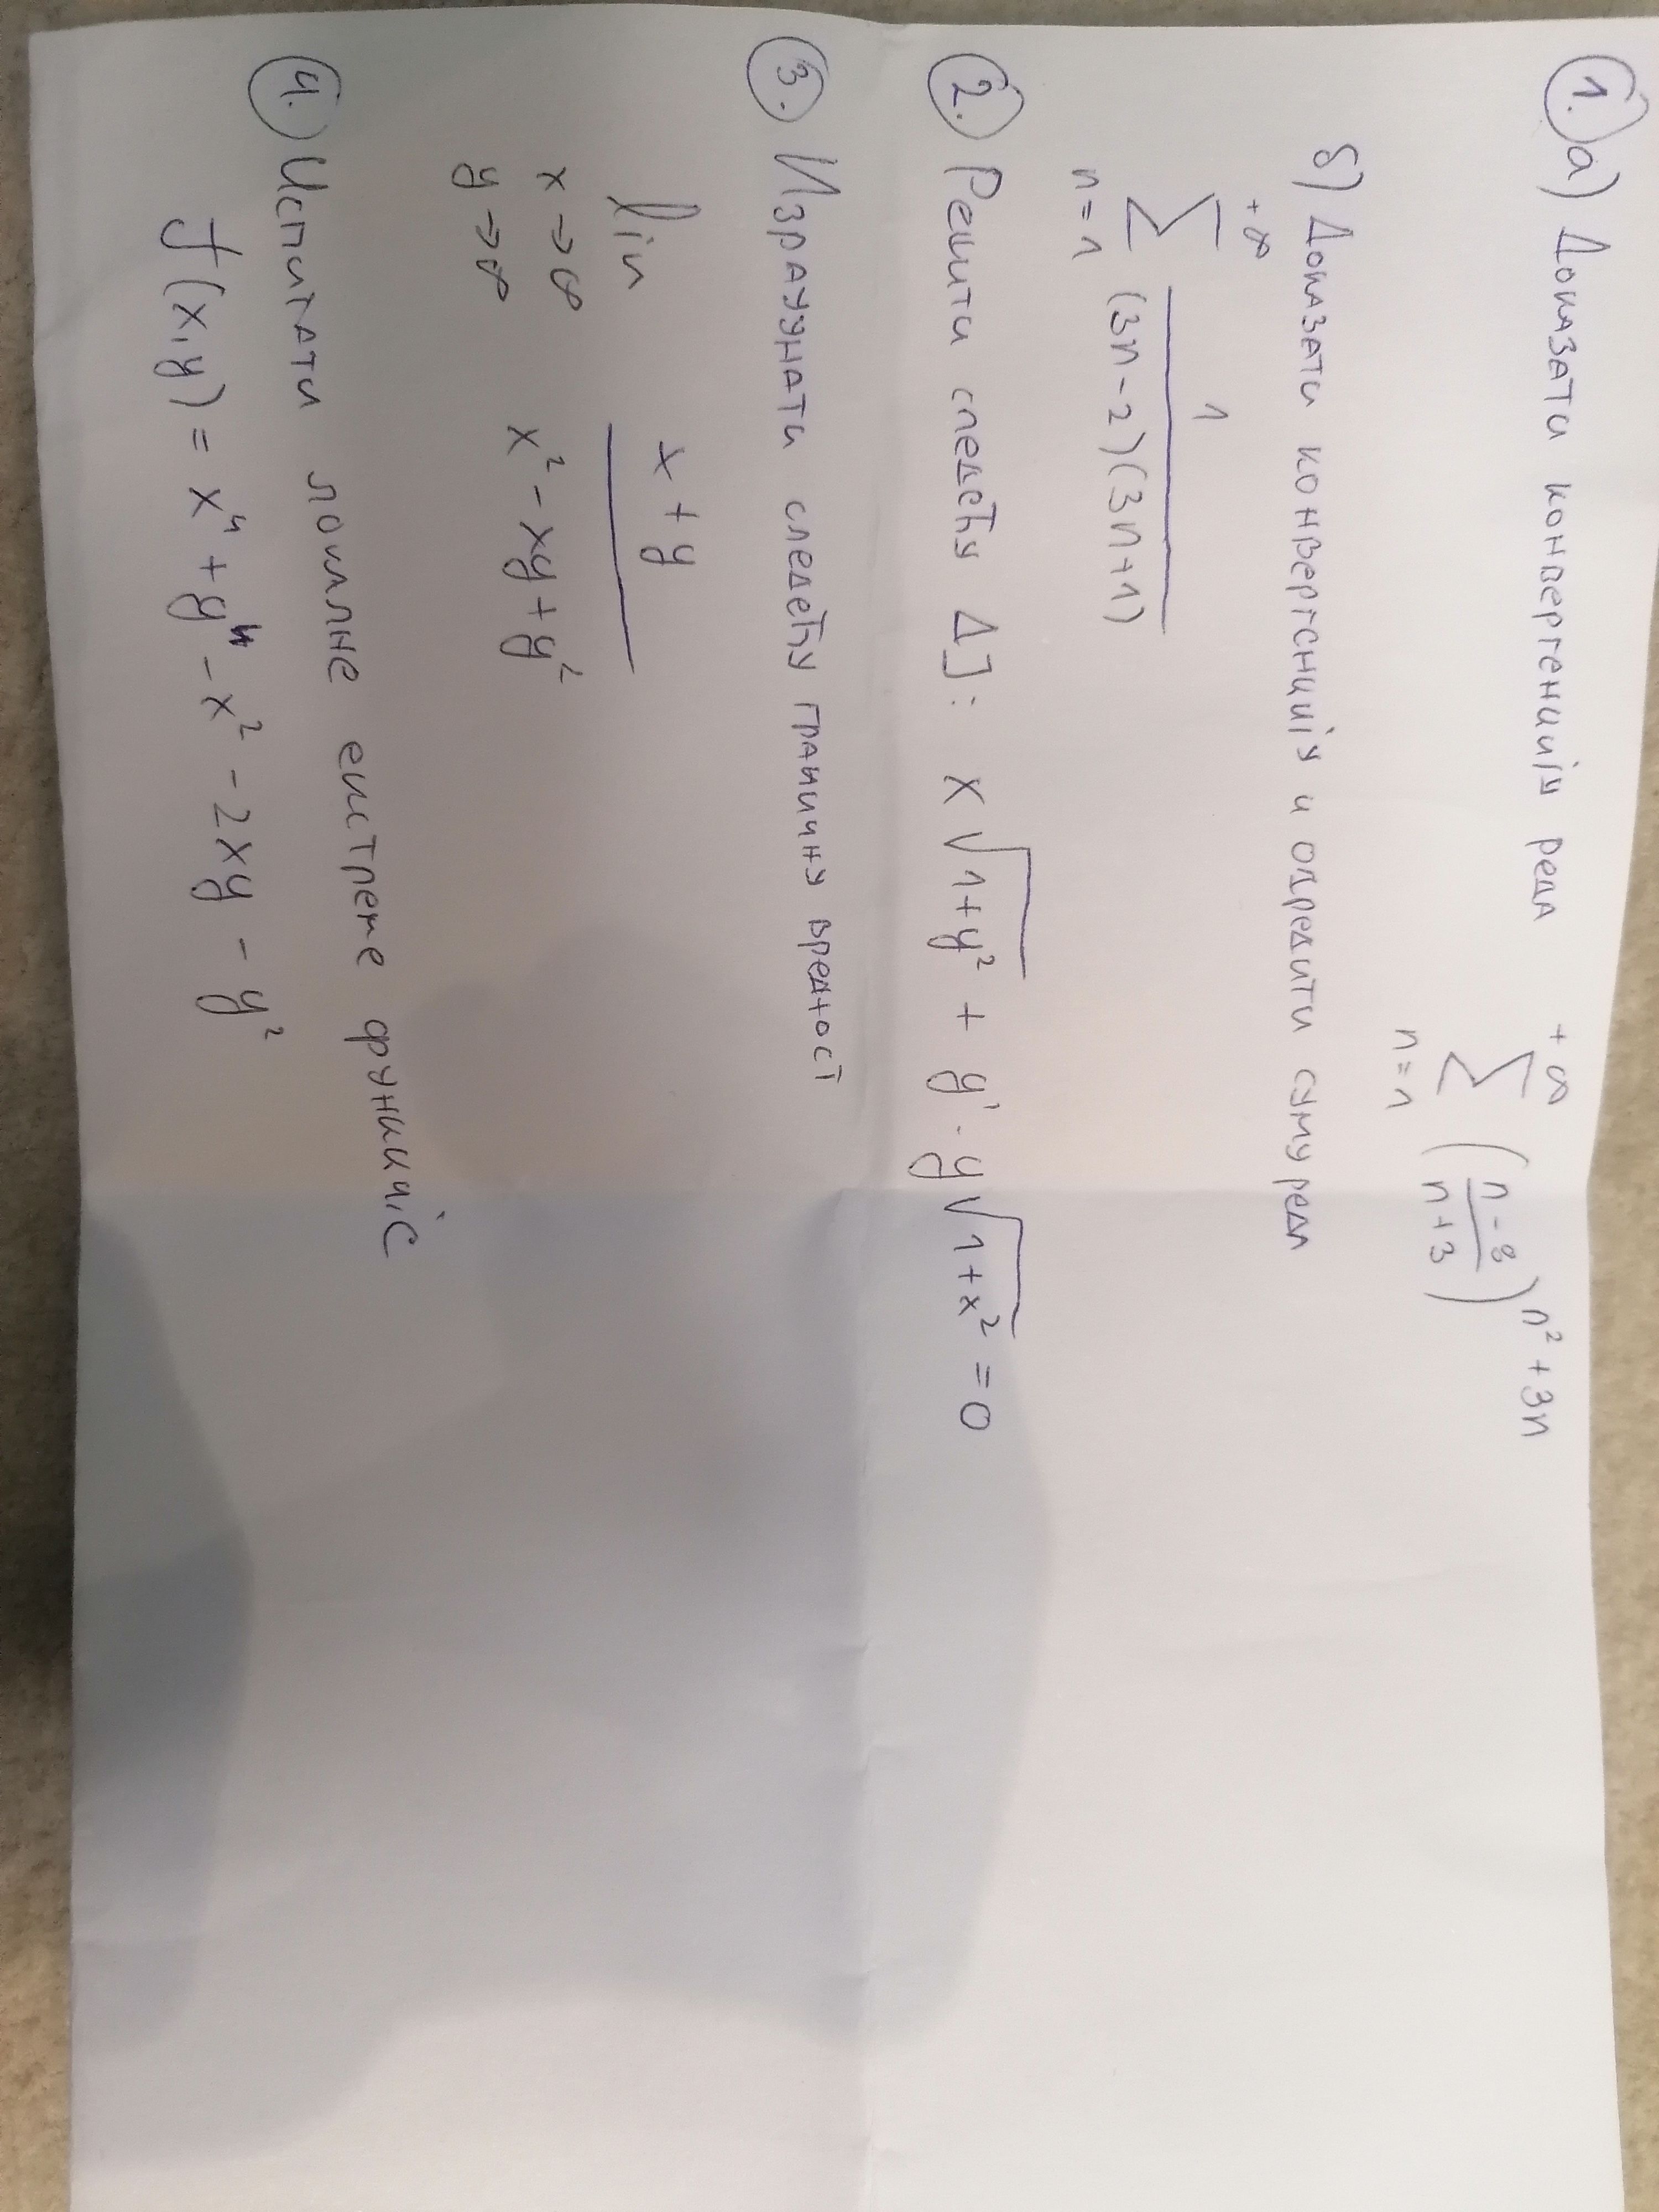 1. а) Доказати конвергенцију реда \sum_{n=1}^{+\infty} \left(\frac{n-8}{n+3}\right)^{n^2+3n}
б) Доказати конвергенцију и одредити суму реда
\sum_{n=1}^{+\infty} \frac{1}{(3n-2)(3n+1)}
2. Решити следећу ДЈ: x\sqrt{1+y^2} + y' \cdot y\sqrt{1+x^2} = 0
3. Израчунати следећу граничну вредност
\lim_{x \to \infty, y \to \infty} \frac{x+y}{x^2-xy+y^2}
4. Испитати локалне екстреме функције
f(x,y) = x^4 + y^4 - x^2 - 2xy - y^2